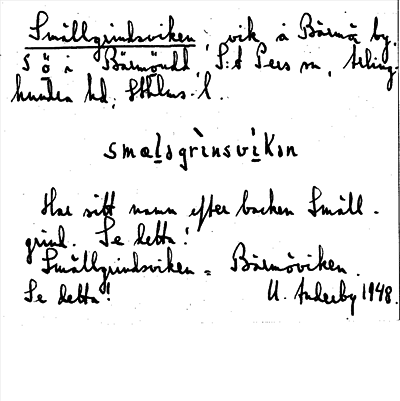 Smällgrindsviken, vik å Bärmö by,
S ö i Bärmöudd, S:t Pers sn, Åling-
hundra hd, Sthlms l.
Har sitt namn efter backen Smäll-
grind. Se detta!
Smällgrindsviken = Bärmöviken.
Se detta! U. Anderby 1948.